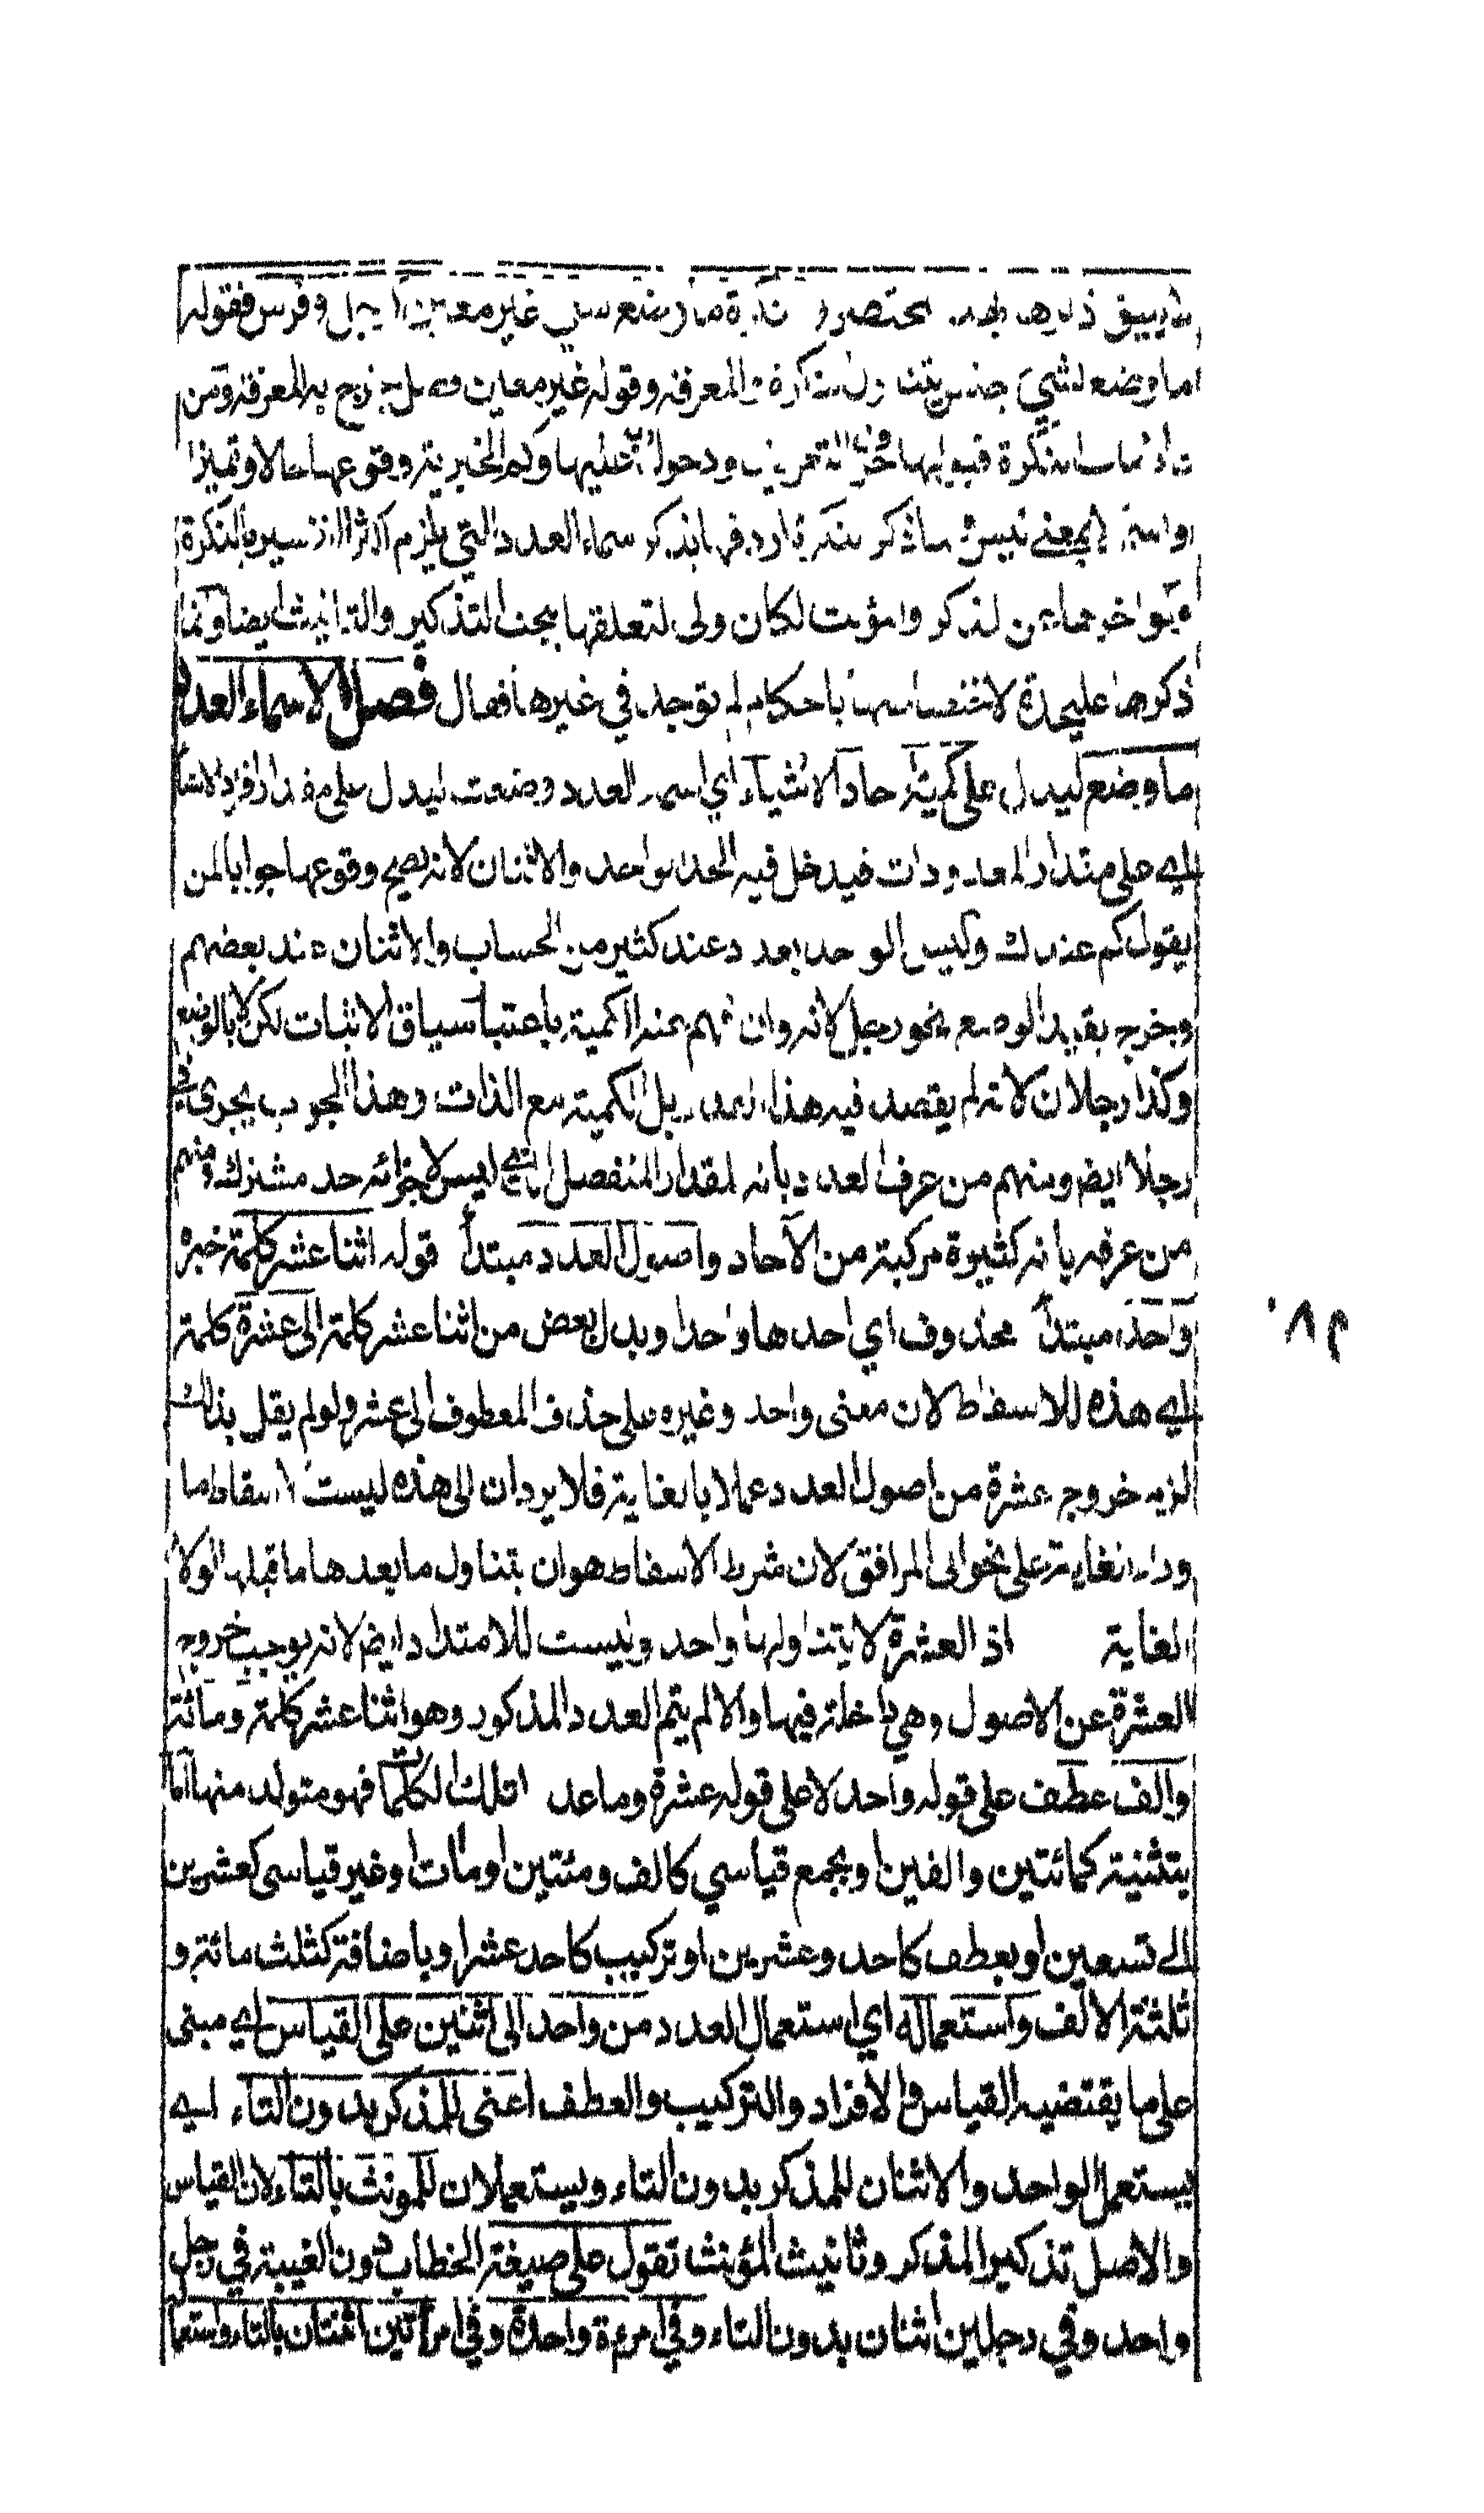 يليق ذلك بهذا المختصر و نكرة ما وضع لشيء غير معين كرجل وفرس فقوله
ما وضع لشيء جنس يتناول النكرة والمعرفة وقوله غير معين فصل خرج به المعرفة ومن
النكرة قبولها حرف التعريف ودخول عليها وكم الخبرية ووقوعها حالا وتميزا
بمعنى ليس النكرة اسماء العدد التي يلزم بالنكرة
المذكر والمؤنث لكان اولى لتعلقها ببحث التذكير والتانيث ايضا وانما
ذكرها عليحدة لاختصاصها باحكام لم توجد في غيرها فقال فصل الاسماء العدد
ما وضع ليدل على كمية احاد الاشياء اي اسماء العدد وضعت ليدل على مقدار افراد الاشياء
اي على مقدار المعدودات فيدخل فيه الحد الواحد والاثنان لانه يصح وقوعها جوابا لمن
يقول كم عندك وليس الواحد بعدد عند كثير من الحساب والاثنان عند بعضهم
وخرج بقيد الوضع نحو رجل لانه وان فهم عنه الكمية باعتبار سياق الاثبات لكن لا بالوضع
وكذا رجلان لانه لم يقصد فيه هذا العدد بل الكمية مع الذات وهذا الجواب يجري في
رجلا ايضا ومنهم من عرف العدد بانه المقدار المنفصل الذي ليس لاجزائه حد مشترك ومنهم
من عرفه بانه كثيرة مركبة من الآحاد واصول العدد مبتدأ قوله اثنا عشر كلمة خبره
واحد مبتدأ محذوف اي احدها واحد او بدل بعض من اثنا عشر كلمة الى عشرة كلمة
الى هذه للاسقاط لان معنى واحد وغيره على حذف المعطوف الى عشر ولو لم يقل بذلك
لزم خروج عشرة من اصول العدد عملا بالغاية فلا يرد ان الى هذه ليست لاسقاط ما
وراء الغاية على نحو الى المرافق لان شرط الاسقاط هو ان يتناول ما بعدها ما قبلها لولا
الغاية اذ العشرة لا يتناولها واحد وليست للامتداد ايضا لانه يوجب خروج
العشرة عن الاصول وهي داخلة فيها والا لم يتم العدد المذكور وهو اثنا عشر كلمة ومائة
والف عطف على قوله واحد لا على قوله عشرة وما عدا تلك الكلمات فهو متولد منها اما
بتثنية كمائتين والفين او بجمع قياسي كالف ومئتين او مأت او غير قياسى كعشرين
الى تسعين او بعطف كاحد وعشرين او تركيب كاحد عشر او باضافة كثلث مائة و
ثلثة الالف واستعماله اي استعمال العدد من واحد الى اثنين على القياس اي مبنى
على ما يقتضيه القياس في الافراد والتركيب والعطف اعنى للمذكر بدون التاء اي
يستعمل الواحد والاثنان للمذكر بدون التاء ويستعملان للمونث بالتاء لان القياس
والاصل تذكير المذكر وتانيث المؤنث تقول على صيغة الخطاب دون الغيبة في رجل
واحد وفي رجلين اثنان بدون التاء وفي امرءة واحدة وفي امرأتين اثنتان بالتاء واستعما